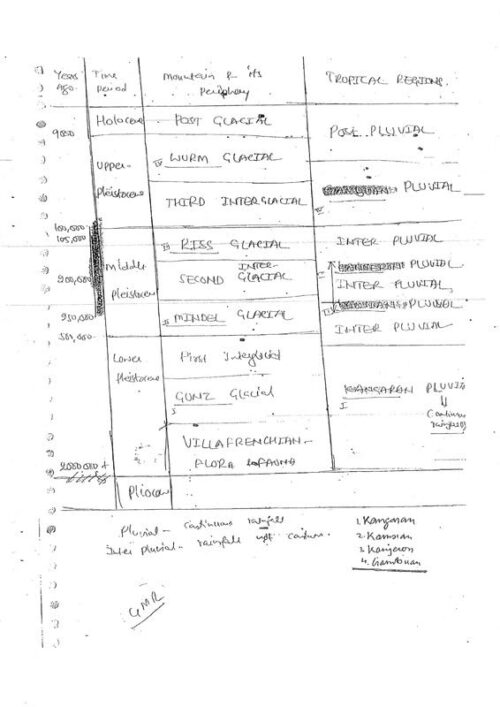 Years Time Mountain & its TROPICAL REGIONS.
ago. Period Periphery
Holocene POST GLACIAL
9000 POST PLUVIAL
IV WURM GLACIAL
Upper- PLUVIAL
Pleistocene THIRD INTERGLACIAL
100,000
105,000 III RISS GLACIAL INTER PLUVIAL
Middle INTER- PLUVIAL
200,000 SECOND GLACIAL INTER PLUVIAL,
Pleistocene PLUVIAL
250,000 II MINDEL GLACIAL INTER PLUVIAL
Lower First Interglacial
Pleistocene
GUNZ Glacial KANGARAN PLUVIAL
I I
(Continuous
rainfall)
VILLAFRENCHIAN-
2000 000 + FLORA & FAUNA
Pliocene
Pluvial - continuous rainfall
Inter Pluvial - rainfall not continu.
1. Kangaran
2. Kamasian
3. Kanjeran
4. Gamblian
GMR